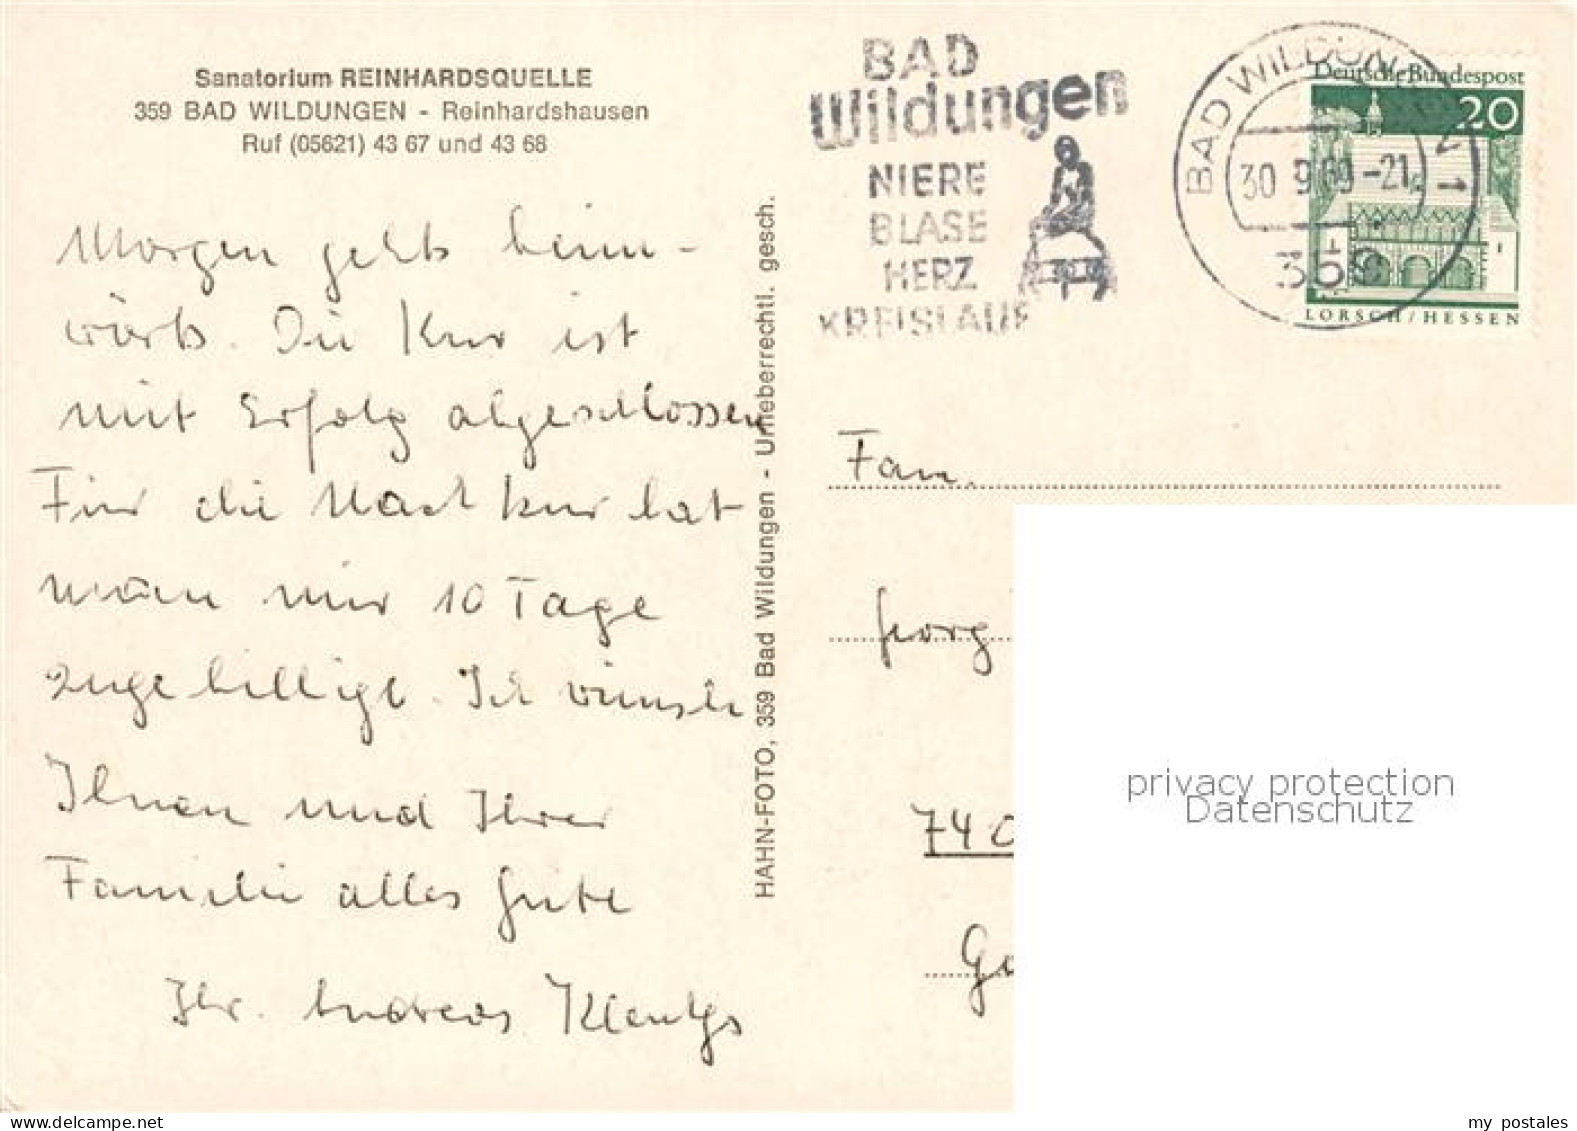 Sanatorium REINHARDSQUELLE
359 BAD WILDUNGEN - Reinhardshausen
Ruf (05621) 43 67 und 43 68
Morgen gehts heim-
wärts. Die Kur ist
mit Erfolg abgeschlossen
Für die Nachkur hat
man mir 10 Tage
zugebilligt. Ich wünsche
Ihnen und Ihrer
Familie alles Gute
Ihr. Andreas
HAHN-FOTO, 359 Bad Wildungen - Urheberrechtl. gesch.
BAD
Wildungen
NIERE
BLASE
HERZ
KREISLAUF
BAD WILDUNGEN 1
30.9.69-21
359
Deutsche Bundespost
20
LORSCH/HESSEN
Fam.
Georg
740
privacy protection
Datenschutz
www.delcampe.net
my_postales